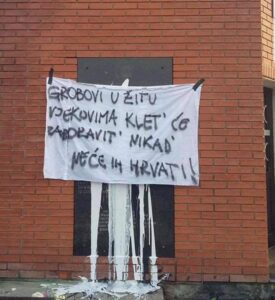 GROBOVI U ŽITU
VJEKOVIMA KLET' ĆE
ZABORAVIT' NIKAD'
NEĆE IH HRVATI!